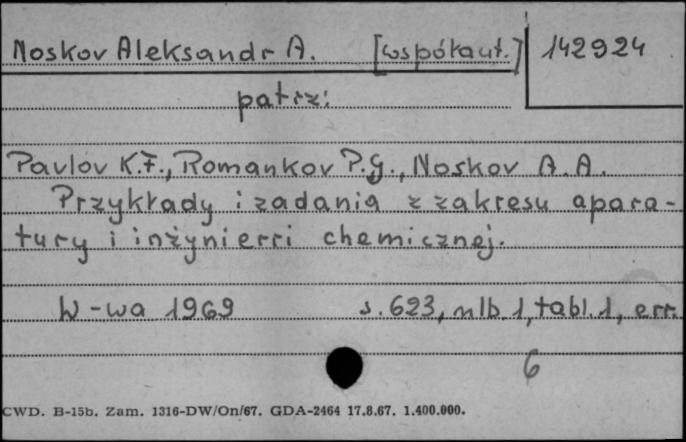 Noskov Aleksandr A. [współaut.] 142924
patrz:
Pavlov K.F., Romankov P.G., Noskov A.A.
Przykłady i zadania z zakresu apara-
tury i inżynierii chemicznej.
W-wa 1969 s. 623, nlb. 1, tabl. 1, err.
6
CWD. B-15b. Zam. 1316-DW/On/67. GDA-2464 17.8.67. 1.400.000.